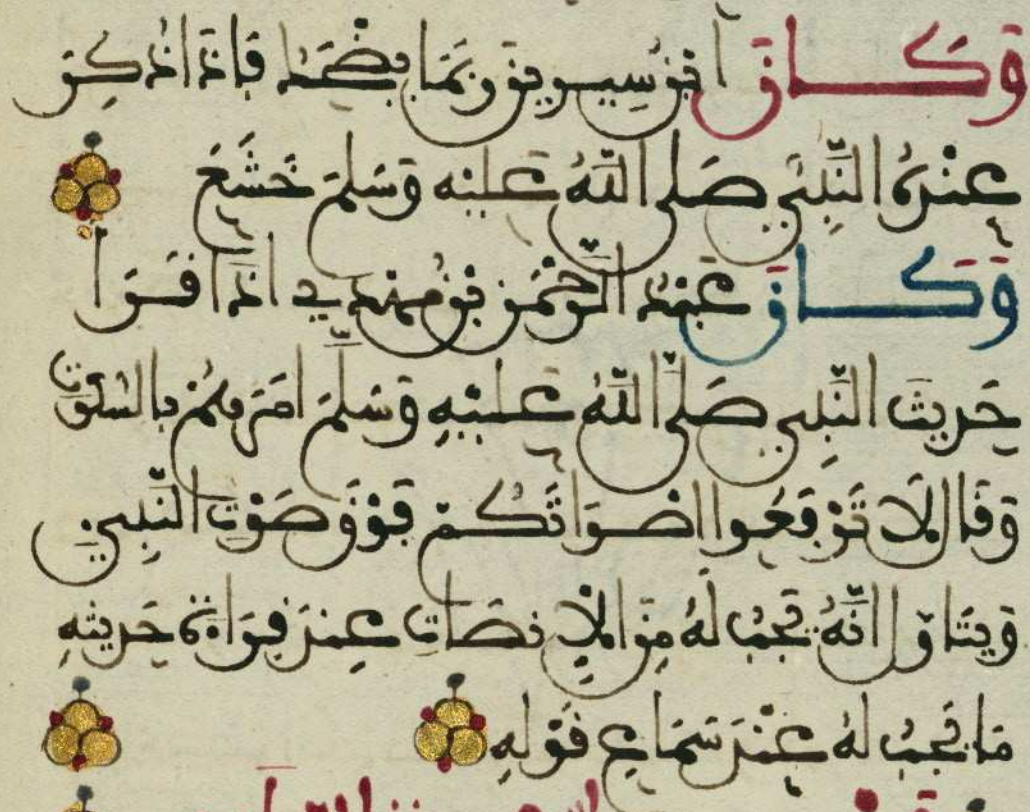 وَكَانَ ابْنُ سِيرِينَ رُبَّمَا يَضْحَكُ فَإِذَا ذُكِرَ
عِنْدَهُ النَّبِيُّ صَلَّى اللَّهُ عَلَيْهِ وَسَلَّمَ خَشَعَ
وَكَانَ عَبْدُ الرَّحْمَنِ بْنُ مَهْدِي إِذَا قَرَأَ
حَدِيثَ النَّبِيِّ صَلَّى اللَّهُ عَلَيْهِ وَسَلَّمَ أَمَرَهُمْ بِالسُّكُوتِ
وَقَالَ لَا تَرْفَعُوا أَصْوَاتَكُمْ فَوْقَ صَوْتِ النَّبِيِّ
وَيَتَأَوَّلُ أَنَّهُ يَجِبُ لَهُ مِنَ الْإِنْصَاتِ عِنْدَ قِرَاءَةِ حَدِيثِهِ
مَا يَجِبُ لَهُ عِنْدَ سَمَاعِ قَوْلِهِ